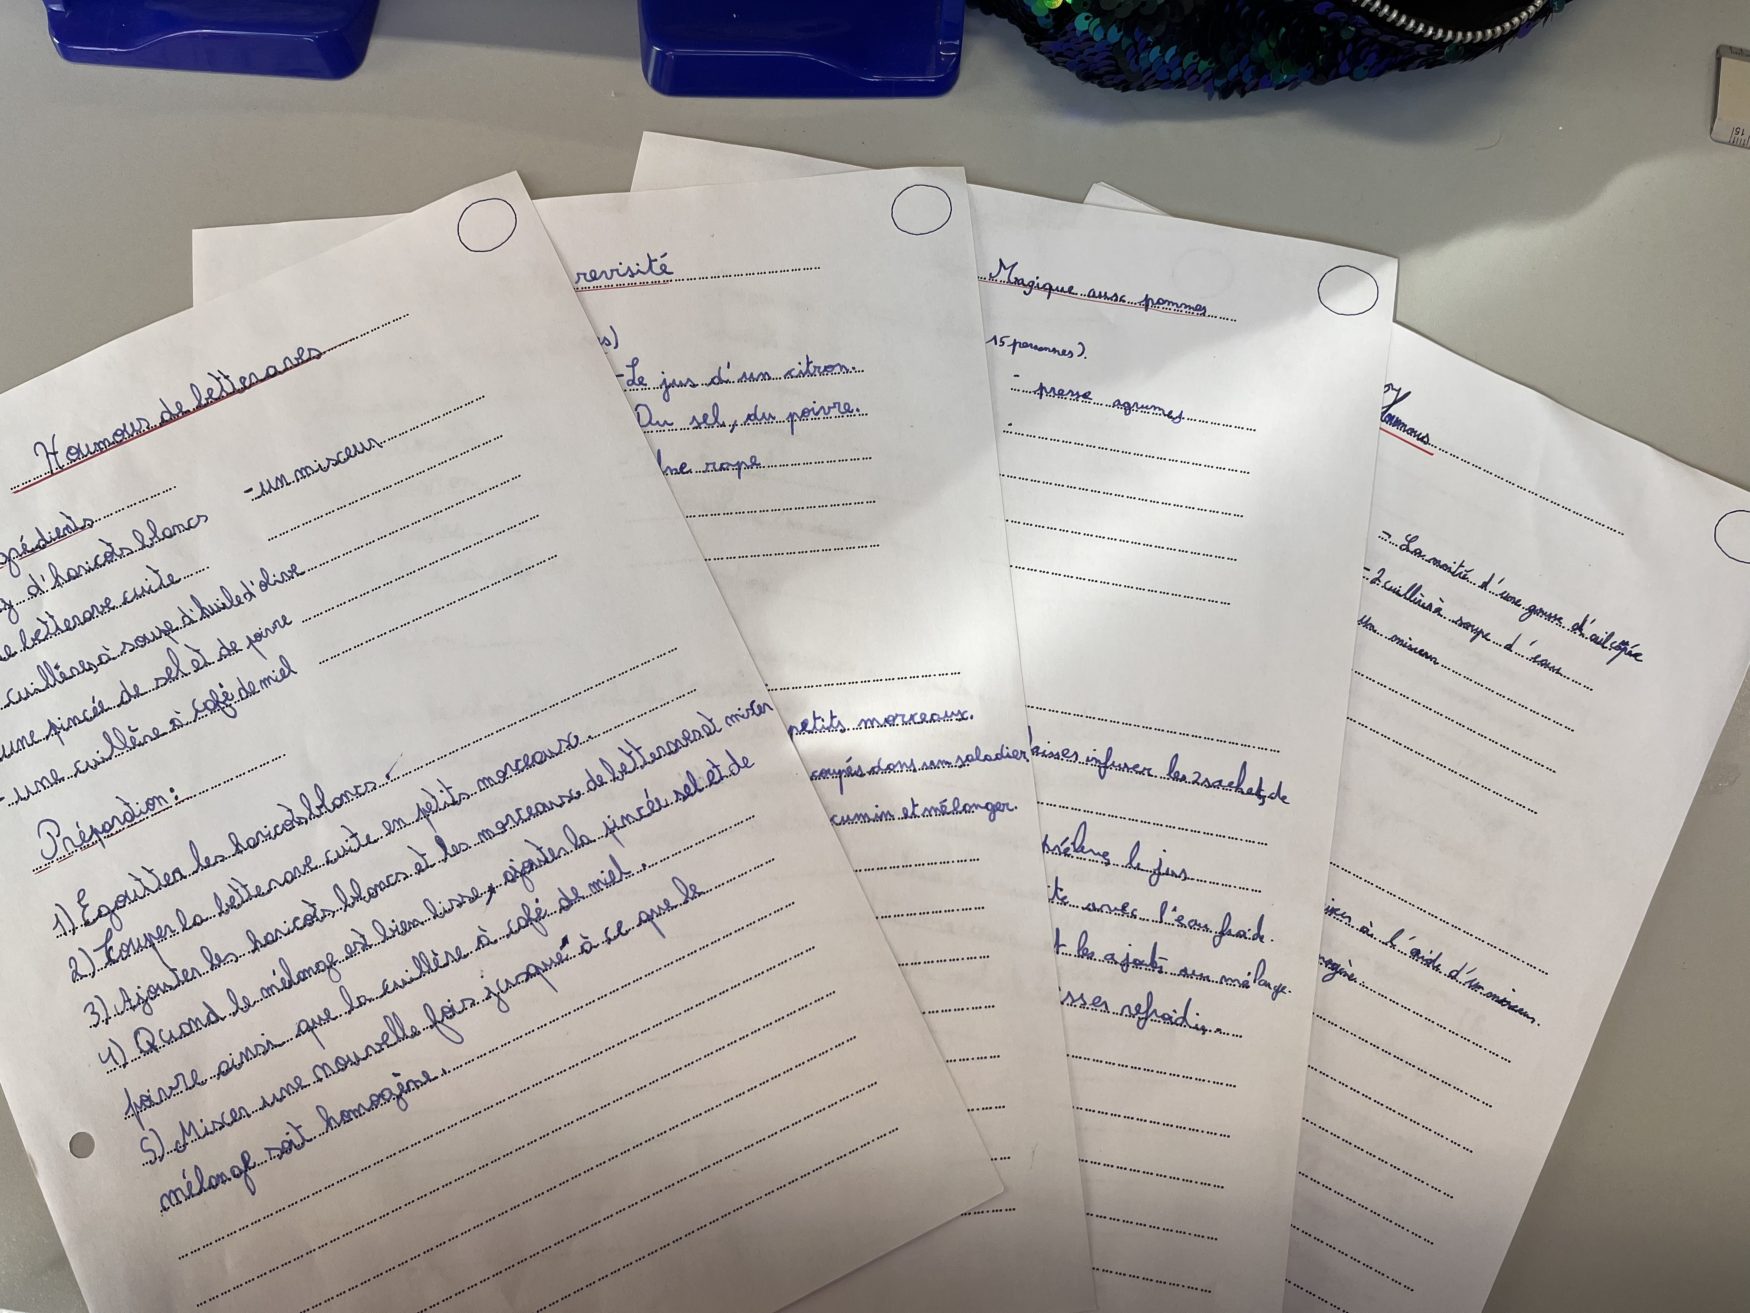 Houmous de betteraves
- un mixeur
d'haricots blancs
betterave cuite
cuillères à soupe d'huile d'olive
une pincée de sel et de poivre
- une cuillère à café de miel
Préparation:
1) Égoutter les haricots blancs.
2) Couper la betterave cuite en petits morceaux.
3) Ajouter les haricots blancs et les morceaux de betterave et mixer
4) Quand le mélange est bien lisse, ajouter la pincée sel et de
poivre ainsi que la cuillère à café de miel.
5) Mixer une nouvelle fois jusque à ce que le
mélange soit homogène.
revisité
-Le jus d'un citron.
Du sel, du poivre.
rape
petits morceaux.
coupés dans un saladier
cumin et mélanger.
Magique aux pommes
15 personnes).
- presse agrumes
-
infuser les 2 sachets de
le jus
avec l'eau froide.
les ajouts au mélange.
refroidir.
Houmous
- La moitié d'une gousse d'ail
- 2 cuillères à soupe d'eau
un mixeur
à l'aide d'un mixeur.
15